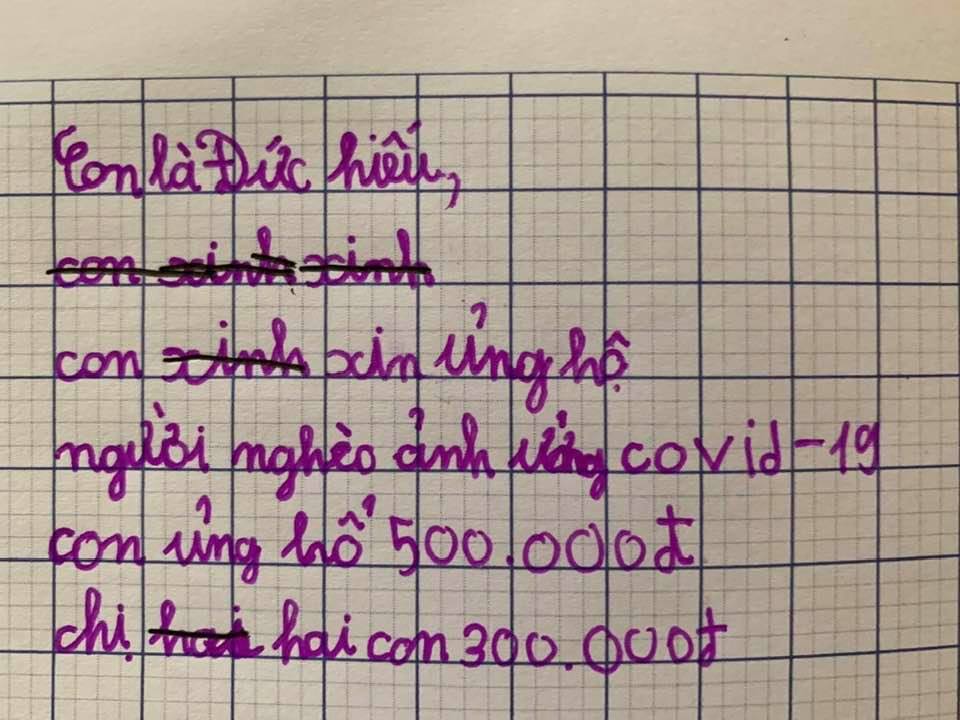 Con là Đức hiếu,
con xinh xinh
con xinh xin ủng hộ
người nghèo ảnh ưởng covid-19
con ủng hổ 500.000đ
chị hai hai con 300.000đ